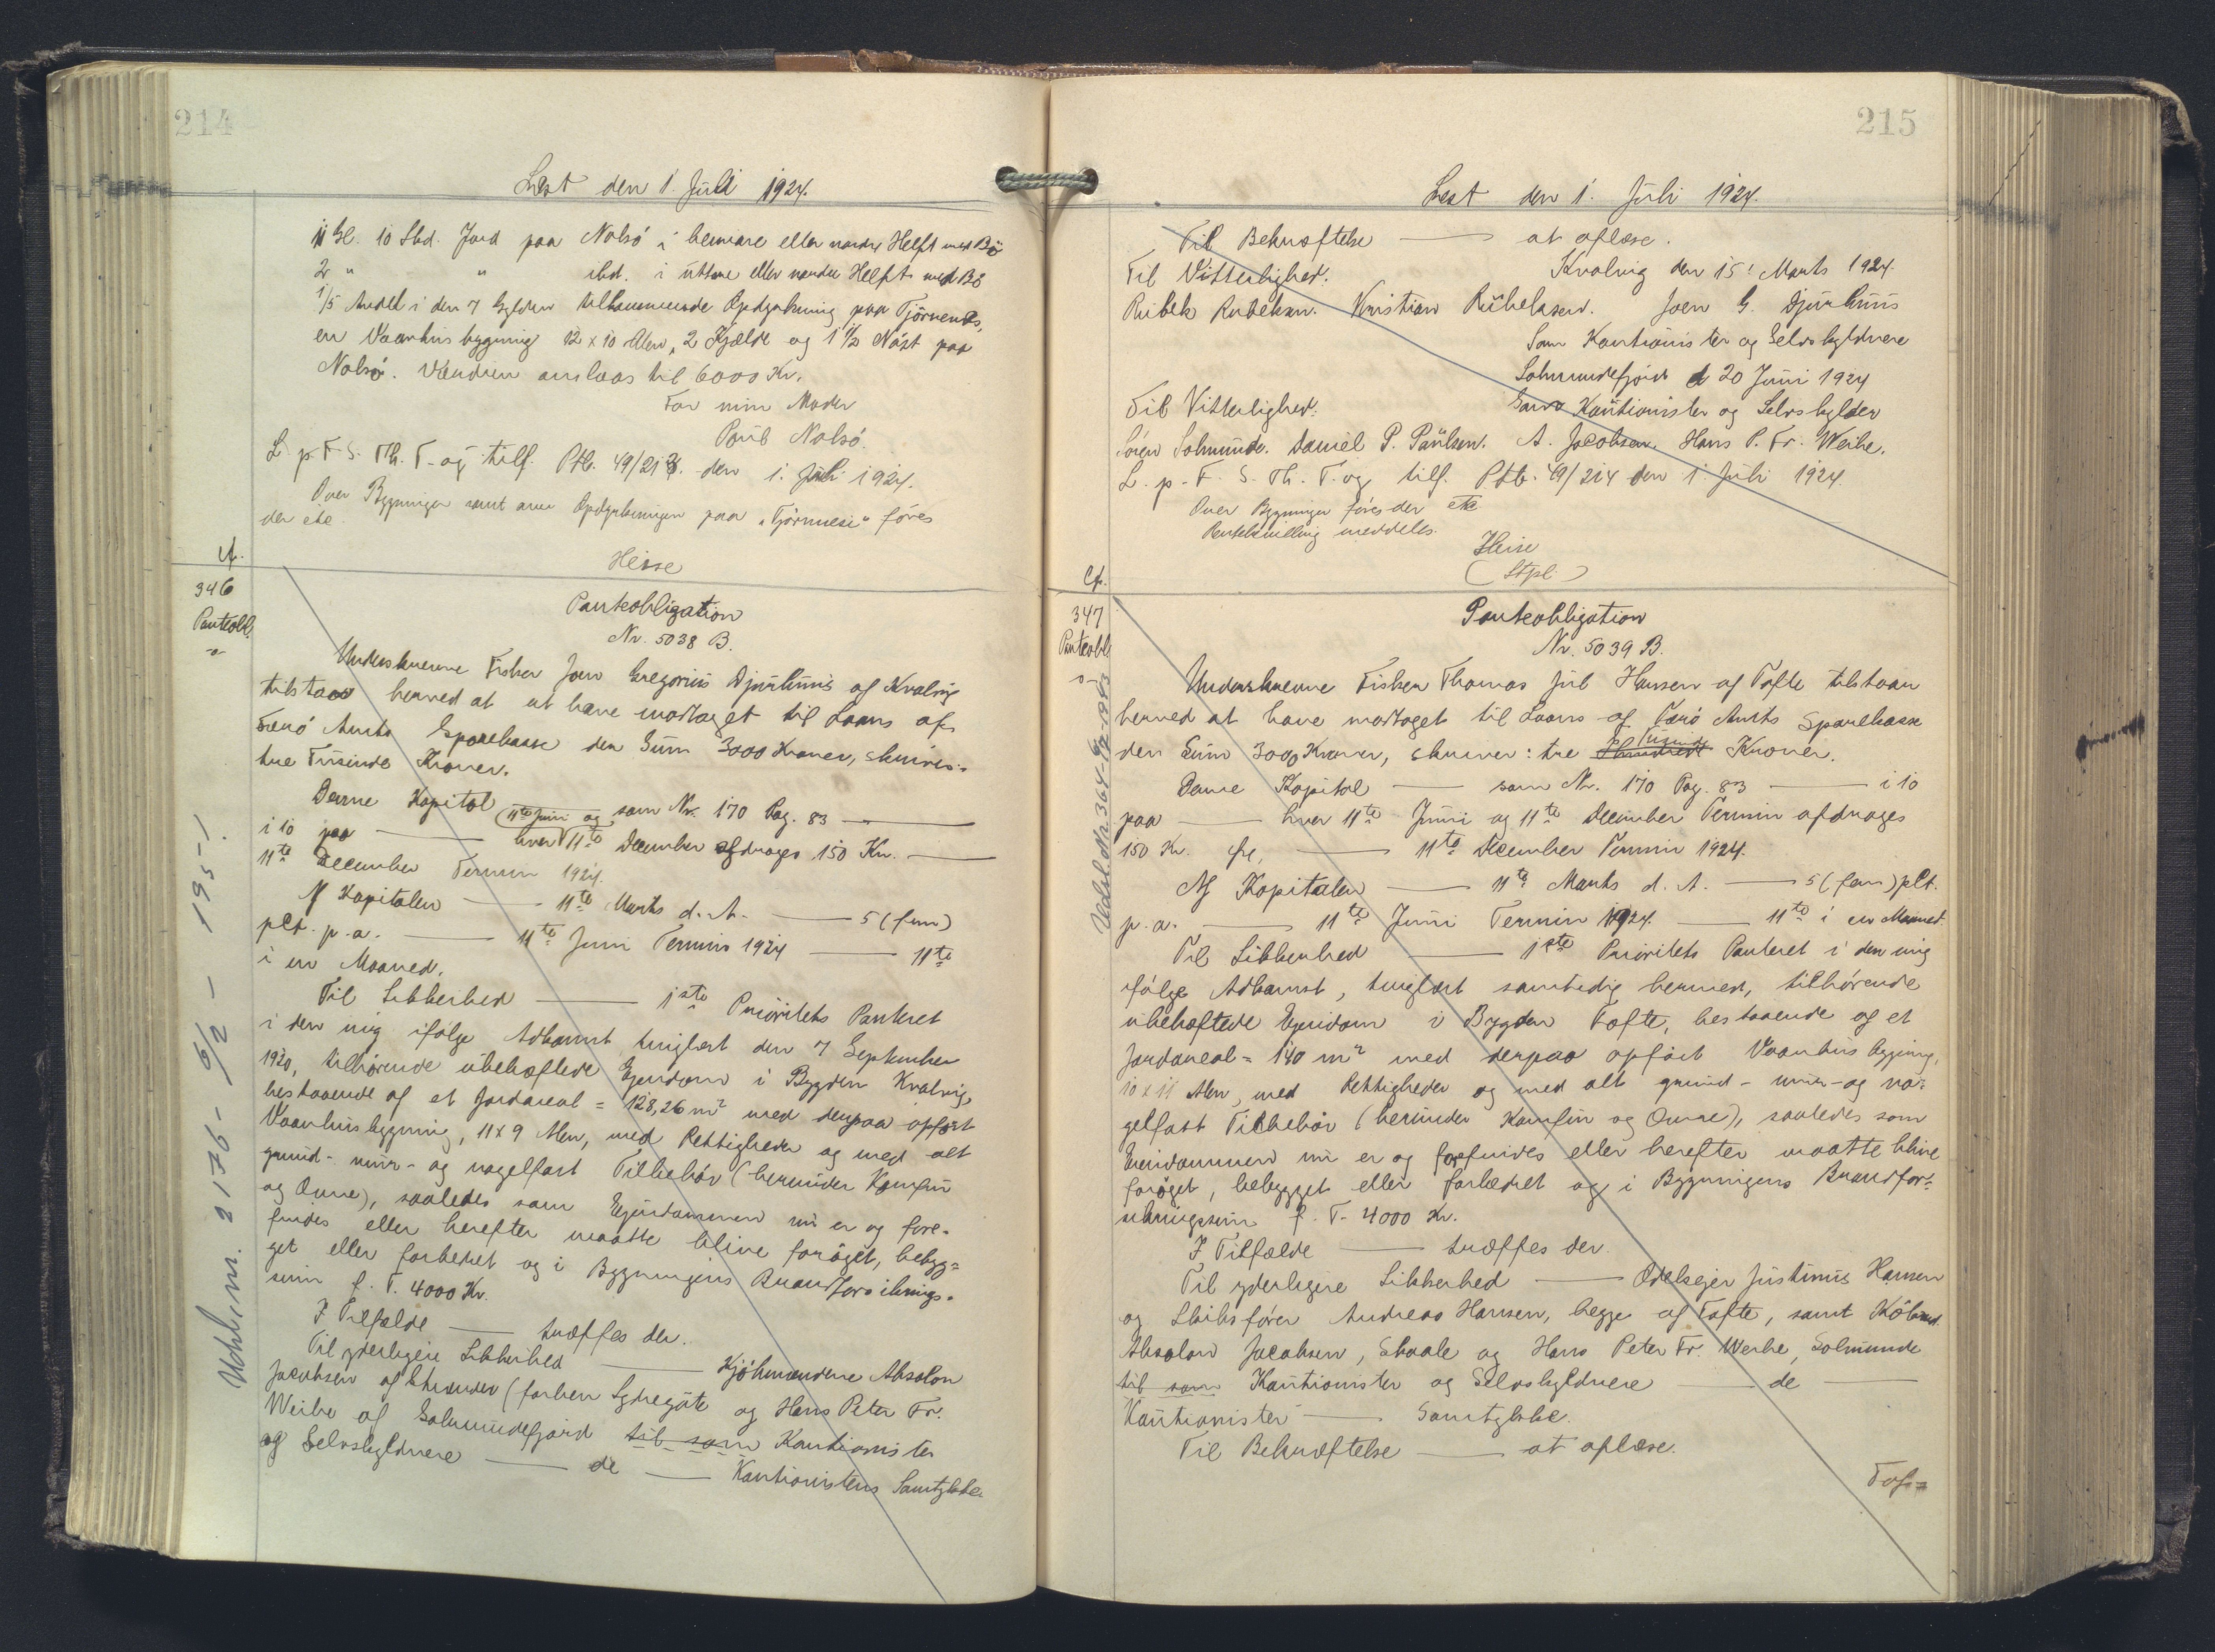 214
Lest den 1. Juli 1924.
11 Gl. 10 Skd. Jord paa Nolsö i heimare eller nordre Helft med Bö
2 " " ibd. i uttare eller nordre Helft med Bö
1/5 Andel i den 7 Gylden tilkommende Opdyrkning paa Tjörnenes,
en Vaanhusbygning 12 x 10 Alen, 2 Kjælde og 1 1/2 Nöst paa
Nolsö. Værdien anslaas til 6000 Kr.
For min Moder
Poul Nolsö.
L. p. F. S. Th. T. og tilf. Ptb. 49/213. den 1. Juli 1924.
Over Bygninger samt over Opdyrkningen paa "Tjörnnesi" föres
der ete.
Heise
Ct.
346
Panteobl.
Panteobligation
Nr. 5038 B.
Underskrevne Fisker Joen Gregorius Djurhuus af Kvalvig
tilstaar herved at at have modtaget til Laans af
Færö Amts Sparekasse den Sum 3000 Kroner, skriver:
tre Tusinde Kroner.
Denne Kapital som Nr. 170 Pag. 83
11te Juni og
i 10 paa hver 11te December afdrages 150 Kr.
11te December Termin 1924.
Af Kapitalen 11te Marts d. A. 5 (fem)
pCt. p. a. 11te Juni Termin 1924 11te
i en Maaned.
Til Sikkerhed 1ste Prioritets Panteret
i den mig ifølge Adkomst tinglæst den 7 September
1920, tilhørende ubehæftede Ejendom i Bygden Kvalvig,
bestaaende af et Jordareal = 128,26 m² med derpaa opført
Vaanhusbygning, 11 x 9 Alen, med Rettigheder og med alt
grund- mur- og nagelfast Tilbehör (herunder Komfur
og Ovne), saaledes som Ejendommen nu er og fore-
findes eller herefter maatte blive forøget, bebyg=
get eller forbedret og i Bygningens Brandforsikrings-
sum p. T. 4000 Kr.
I Tilfælde træffes der.
Til yderligere Sikkerhed Kjöbmændene Absolon
Jacobsen af Strænder (forhen Sydregöte og Hans Peter Fr.
Weihe af Solmundefjord til som Kautionister
og Selvskyldnere de Kautionistens Samtykke.
Udsl. m. 2176 - 6/2 - 195-1.
215
Lest den 1. Juli 1924.
Til Bekræftelse at oplæse.
Til Vitterlighed. Kvalvig den 15' Marts 1924.
Rubek Rubeksen. Kristian Rubeksen. Joen G. Djurhuus
Som Kautionister og Selvskyldnere
Solmundefjord d 20 Juni 1924
Til Vitterlighed. Som Kautionister og Selvskylder
Sören Solmunde. Daniel P. Paulsen. A. Jacobsen. Hans P. Fr. Weihe.
L. p. F. S. Th. T. og tilf. Ptb. 49/214 den 1. Juli 1924.
Over Bygninger föres der ete
Panteskilling meddeles.
Heise
(Stpl.)
Ct.
347
Panteobl.
Panteobligation
Nr. 5039 B.
Underskrevne Fisker Thomas Jul Hansen af Tofte tilstaar
herved at have modtaget til Laans af Færö Amts Sparekasse
Tusind
den Sum 3000 Kroner, skriver: tre Hundrede Kroner.
Denne Kapital som Nr. 170 Pag. 83 i 10
paa hver 11te Juni og 11te December Termin afdrages
150 Kr. 11te December Termin 1924.
Af Kapitalen 11te Marts d. A. 5 (fem) pCt.
p. a. 11te Juni Termin 1924. 11te i en Maaned.
Til Sikkerhed 1ste Prioritets Panteret i den mig
ifølge Adkomst, tinglæst samtidig hermed, tilhørende
ubehæftede Ejendom i Bygden Tofte, bestaaende af et
Jordareal = 140 m² med derpaa opført Vaanhusbygning,
10 x 11 Alen, med Rettigheder og med alt grund- mur- og na-
gelfast Tilbehör (herunder Komfur og Ovne), saaledes som
Ejendommen nu er og forefindes eller herefter maatte blive
forøget, bebygget eller forbedret og i Bygningens Brandfor-
sikringssum p. T. 4000 Kr.
I Tilfælde træffes der.
Til yderligere Sikkerhed Odelsejer Justinus Hansen
og Skibsförer Andreas Hansen, begge af Tofte, samt Köbmd.
Absolon Jacobsen, Skaale og Hans Peter Fr. Weihe, Solmunde
til som Kautionister og Selvskyldnere de
Kautionister Samtykke.
Til Bekræftelse at oplæse.
Tof=